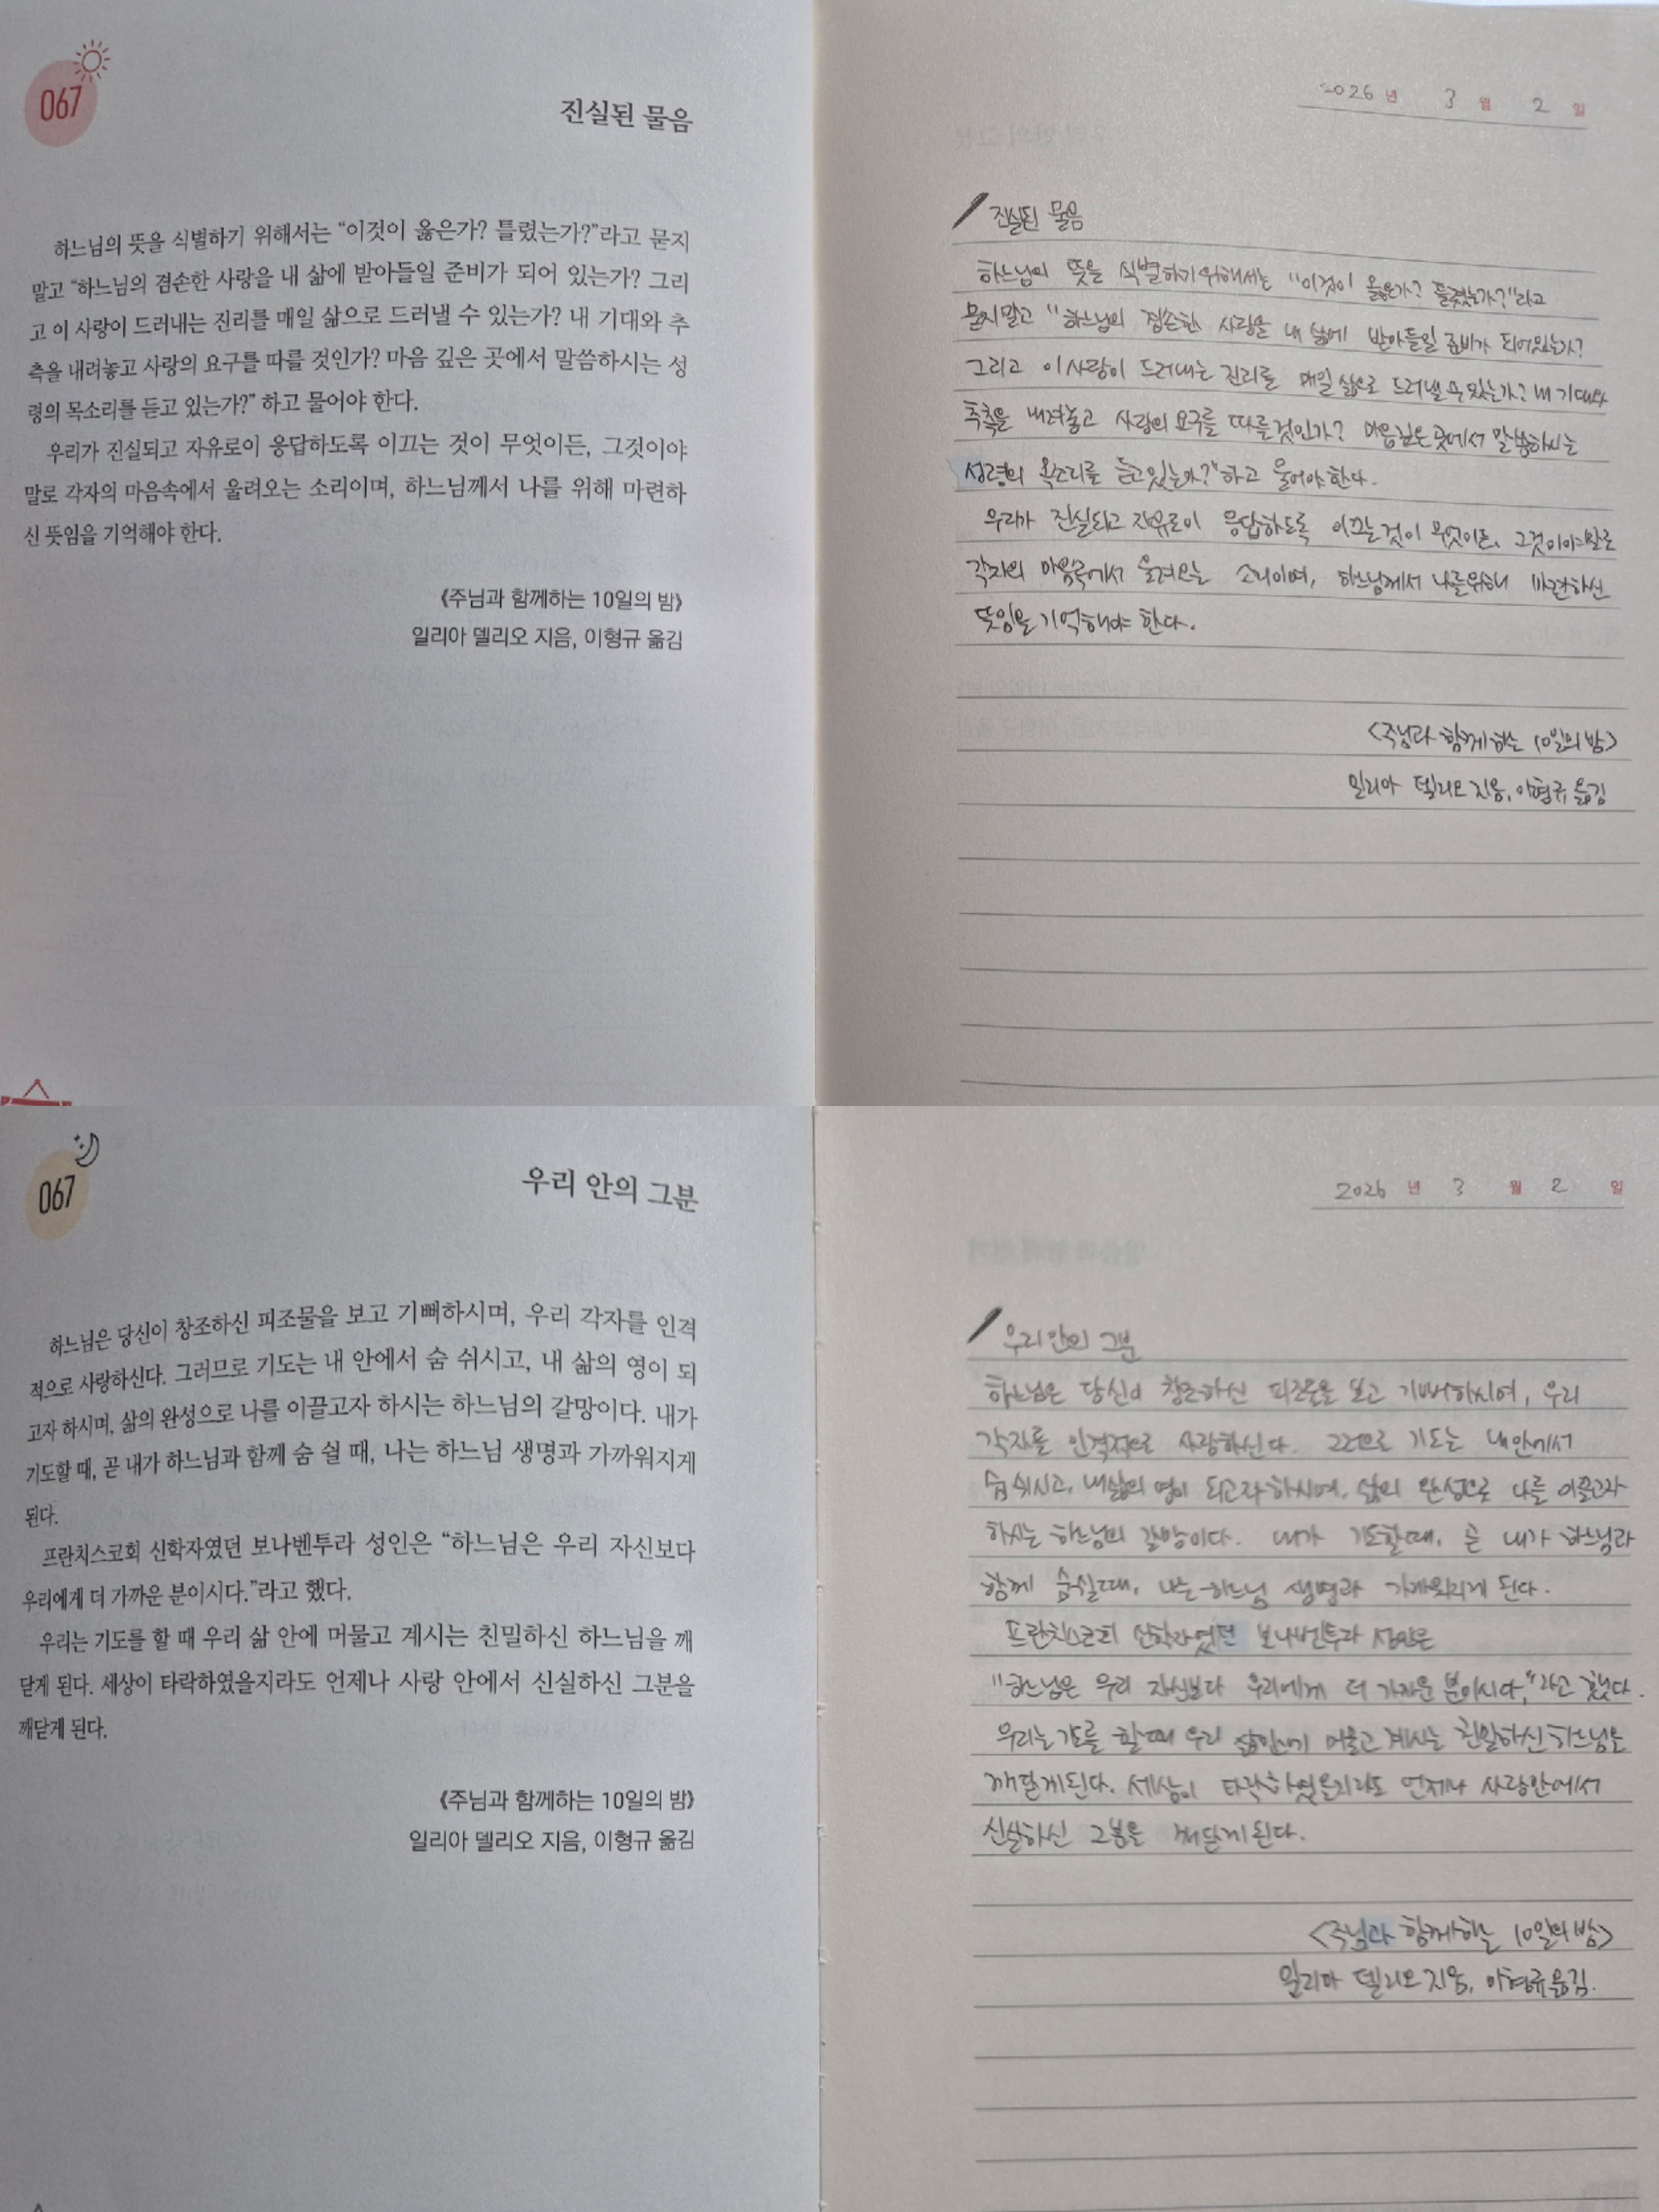 067
진실된 물음
하느님의 뜻을 식별하기 위해서는 “이것이 옳은가? 틀렸는가?”라고 묻지
말고 “하느님의 겸손한 사랑을 내 삶에 받아들일 준비가 되어 있는가? 그리
고 이 사랑이 드러내는 진리를 매일 삶으로 드러낼 수 있는가? 내 기대와 추
측을 내려놓고 사랑의 요구를 따를 것인가? 마음 깊은 곳에서 말씀하시는 성
령의 목소리를 듣고 있는가?” 하고 물어야 한다.
우리가 진실되고 자유로이 응답하도록 이끄는 것이 무엇이든, 그것이야
말로 각자의 마음속에서 울려오는 소리이며, 하느님께서 나를 위해 마련하
신 뜻임을 기억해야 한다.
《주님과 함께하는 10일의 밤》
일리아 델리오 지음, 이형규 옮김
2026 년 3 월 2 일
진실된 물음
하느님의 뜻을 식별하기위해서는 "이것이 옳은가? 틀렸는가?"라고
묻지말고 "하느님의 겸손한 사랑을 내 삶에 받아들일 준비가 되어있는가?
그리고 이사랑이 드러내는 진리를 매일 삶으로 드러낼 수 있는가? 내 기대와
추측을 내려놓고 사랑의 요구를 따를것인가? 마음깊은 곳에서 말씀하시는
성령의 목소리를 듣고있는가?"하고 물어야한다.
우리가 진실되고 자유로이 응답하도록 이끄는것이 무엇이든, 그것이야말로
각자의 마음속에서 울려오는 소리이며, 하느님께서 나를위해 마련하신
뜻임을 기억해야 한다.
<주님과 함께하는 10일의 밤>
일리아 델리오 지음, 이형규 옮김
067
우리 안의 그분
하느님은 당신이 창조하신 피조물을 보고 기뻐하시며, 우리 각자를 인격
적으로 사랑하신다. 그러므로 기도는 내 안에서 숨 쉬시고, 내 삶의 영이 되
고자 하시며, 삶의 완성으로 나를 이끌고자 하시는 하느님의 갈망이다. 내가
기도할 때, 곧 내가 하느님과 함께 숨 쉴 때, 나는 하느님 생명과 가까워지게
된다.
프란치스코회 신학자였던 보나벤투라 성인은 “하느님은 우리 자신보다
우리에게 더 가까운 분이시다.”라고 했다.
우리는 기도를 할 때 우리 삶 안에 머물고 계시는 친밀하신 하느님을 깨
닫게 된다. 세상이 타락하였을지라도 언제나 사랑 안에서 신실하신 그분을
깨닫게 된다.
《주님과 함께하는 10일의 밤》
일리아 델리오 지음, 이형규 옮김
2026 년 3 월 2 일
우리 안의 그분
하느님은 당신이 창조하신 피조물을 보고 기뻐하시며, 우리
각자를 인격적으로 사랑하신다. 그러므로 기도는 내안에서
숨 쉬시고, 내삶의 영이 되고자 하시며, 삶의 완성으로 나를 이끌고자
하시는 하느님의 갈망이다. 내가 기도할때, 곧 내가 하느님과
함께 숨쉴때, 나는 하느님 생명과 가까워지게 된다.
프란치스코회 신학자였던 보나벤투라 성인은
"하느님은 우리 자신보다 우리에게 더 가까운 분이시다."라고 했다.
우리는 기도를 할때 우리 머물고 계시는 친밀하신 하느님을
깨닫게된다. 세상이 타락하였을지라도 언제나 사랑안에서
신실하신 그분을 깨닫게 된다.
<주님과 함께하는 10일의 밤>
일리아 델리오 지음, 이형규 옮김.